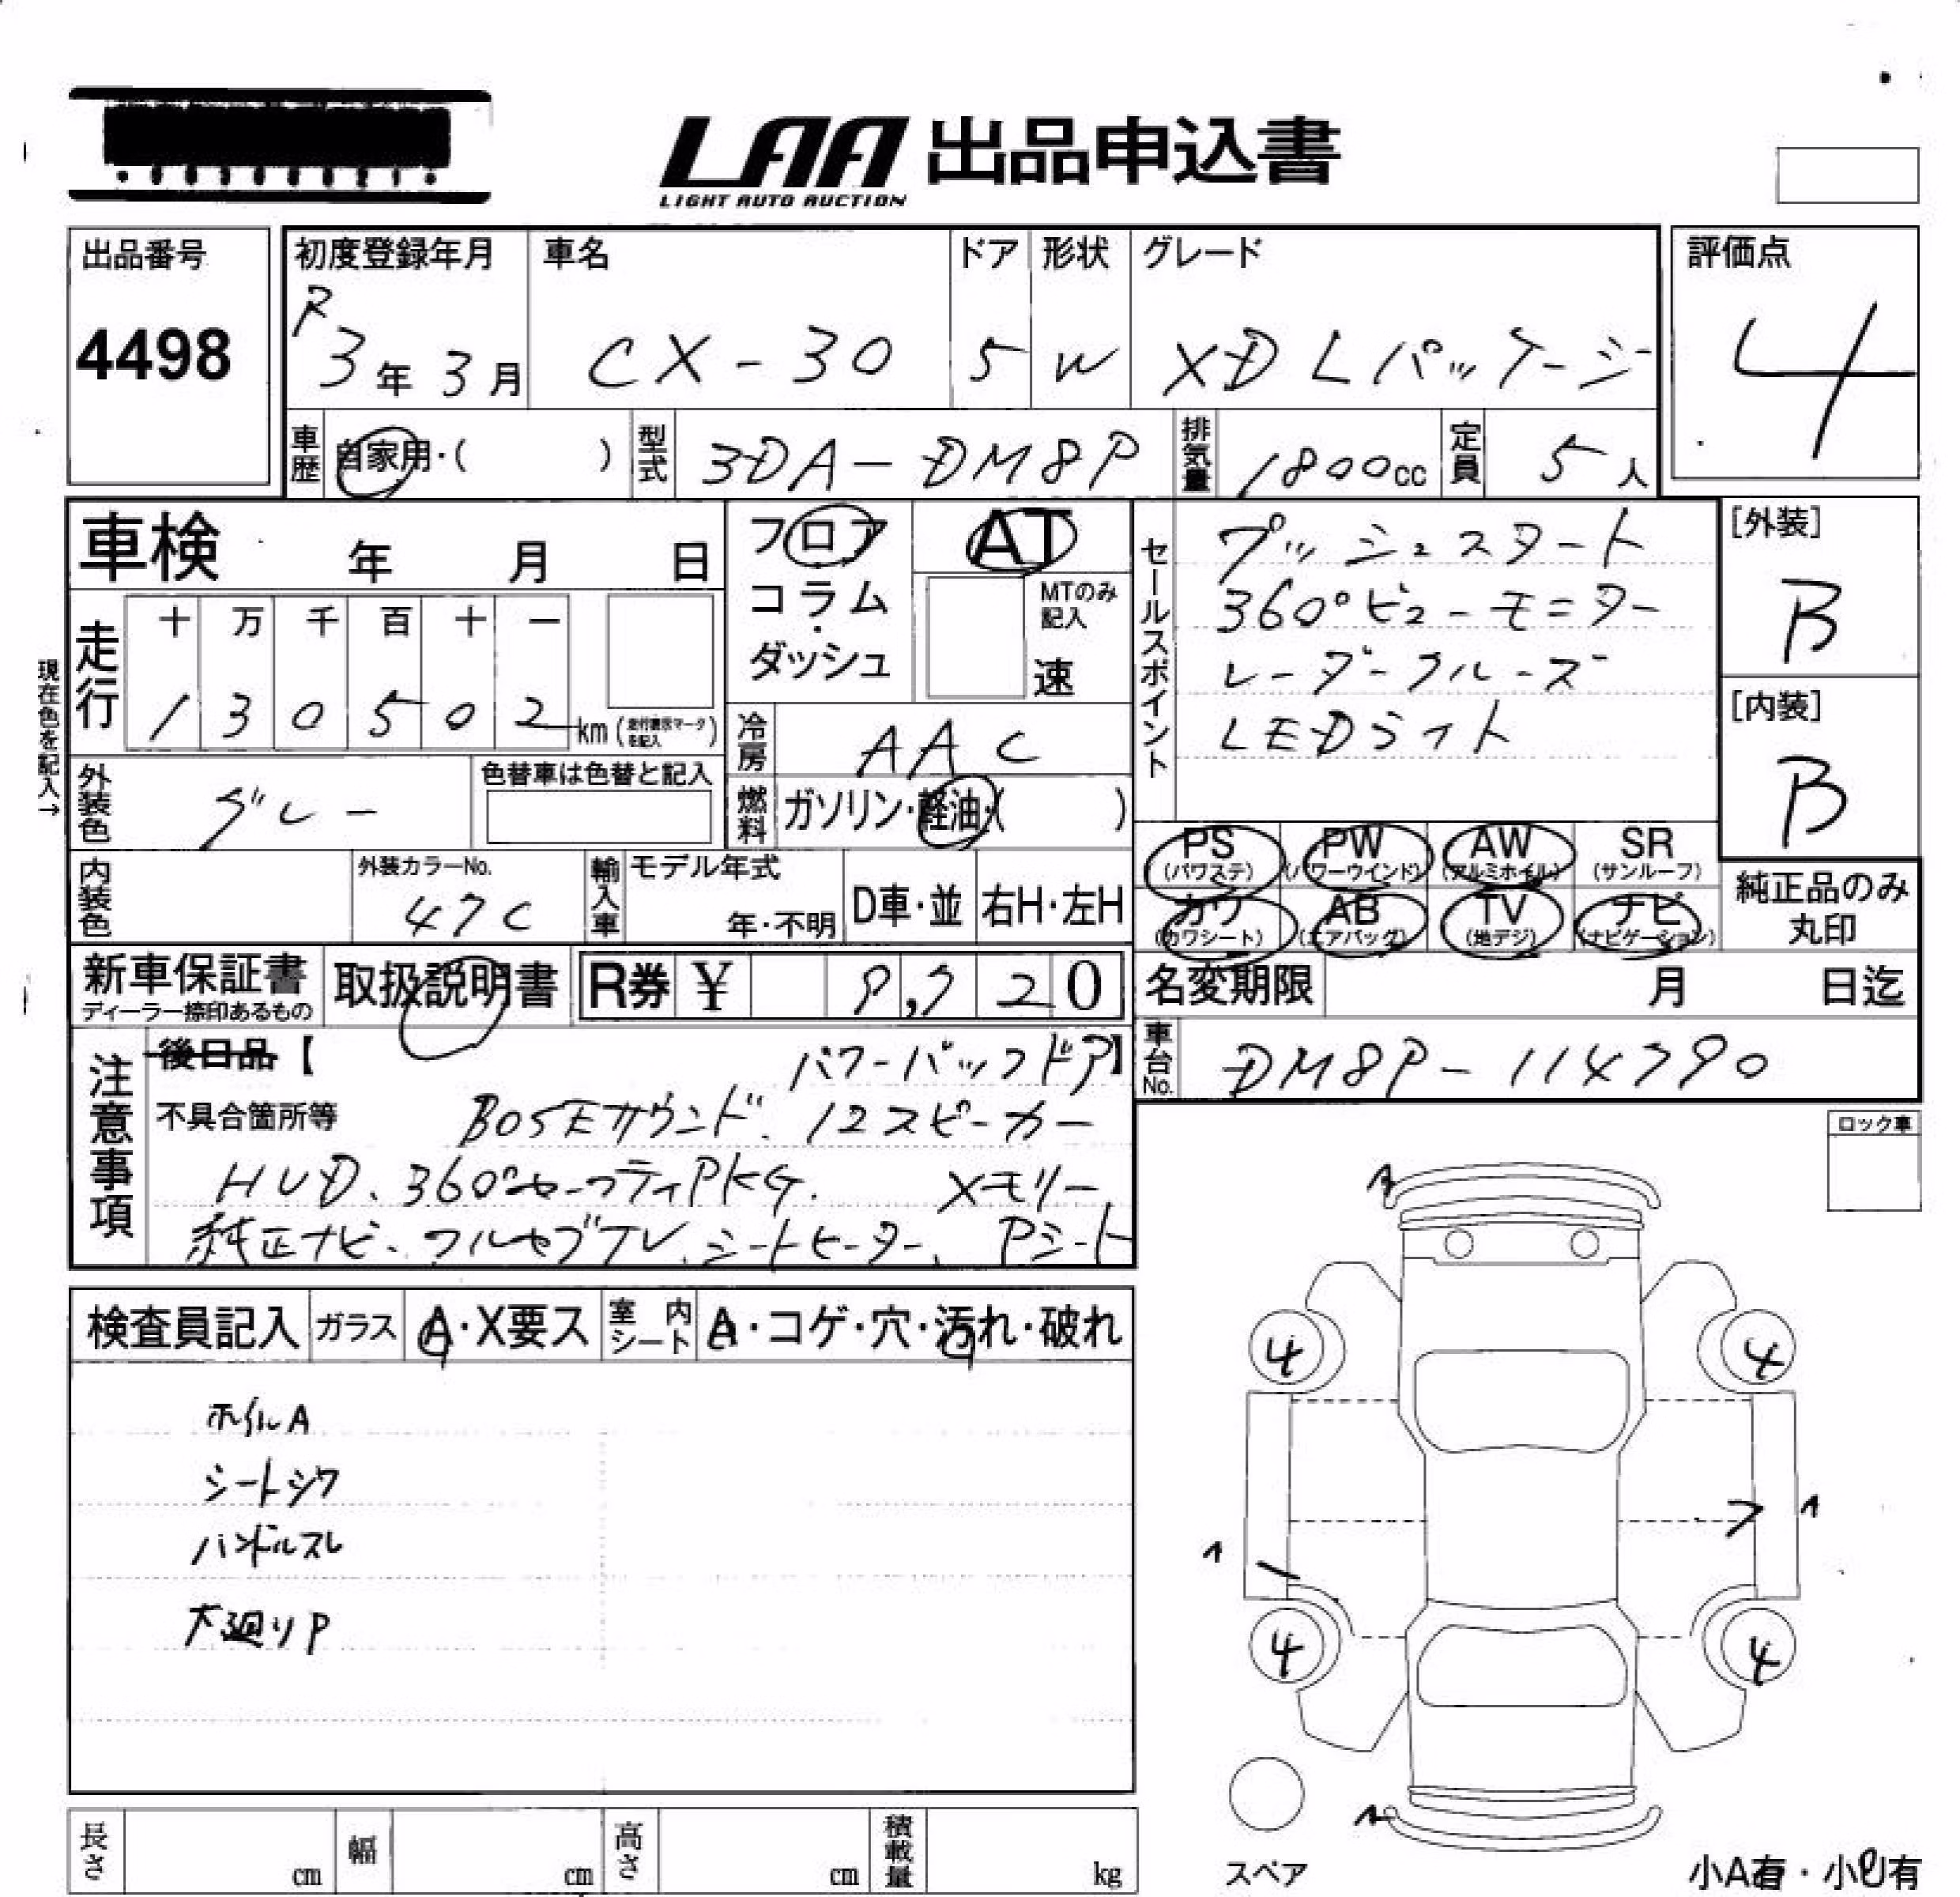 LAA 出品申込書
LIGHT AUTO AUCTION
出品番号
4498
初度登録年月
R 3年 3月
車名
CX-30
ドア
5
形状
W
グレード
XD Lパッケージ
評価点
4
車歴 自家用・( )
型式 3DA-DM8P
排気量 1800cc
定員 5人
車検 年 月 日
フロア
コラム・
ダッシュ
AT
MTのみ
記入
速
セールスポイント
プッシュスタート
360°ビューモニター
レーダークルーズ
LEDライト
[外装]
B
[内装]
B
現在色を記入→
走行
十 万 千 百 十 一
1 3 0 5 0 2 km(走行表示マークを記入)
冷房 AAC
外装色 グレー
色替車は色替と記入
燃料 ガソリン・軽油・( )
PS (パワステ)
PW (パワーウインド)
AW (アルミホイル)
SR (サンルーフ)
カワ (カワシート)
AB (エアバッグ)
TV (地デジ)
ナビ (ナビゲーション)
純正品のみ
丸印
内装色
外装カラーNo.
47C
輸入車
モデル年式
年・不明
D車・並
右H・左H
新車保証書
ディーラー捺印あるもの
取扱説明書
R券 ¥ 9,720
名変期限 月 日迄
車台No. DM8P-114790
注意事項
後日品【 パワーバックドア】
不具合箇所等 BOSEサウンド、12スピーカー
HUD、360°セーフティPKG、 メモリー
純正ナビ、フルセグTV、シートヒーター、Pシート
ロック車
検査員記入
ガラス A・X要ス
室内シート A・コゲ・穴・汚れ・破れ
ホイルA
シートシワ
ハンドルスレ
下廻りP
4 4
1
1
4 4
スペア
長さ cm
幅 cm
高さ cm
積載量 kg
小A有・小U有